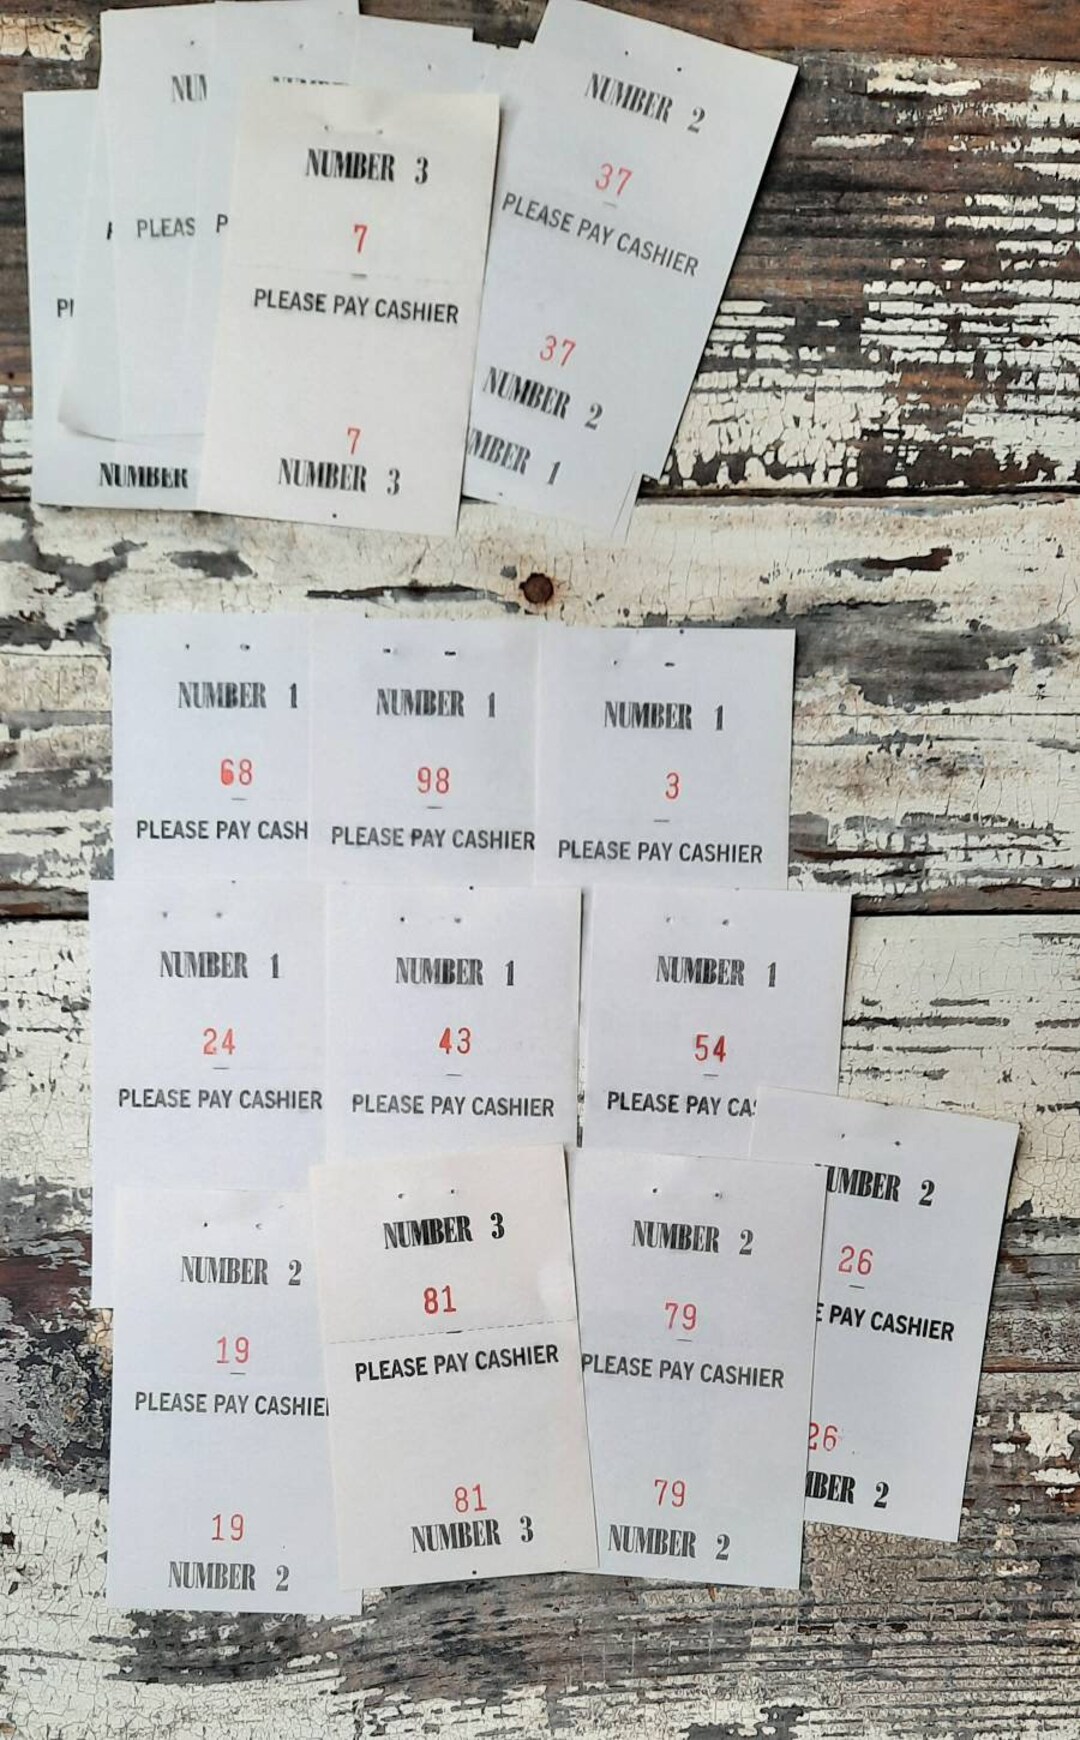 NUM
PLEAS
P
NUMBER
NUMBER 3
7
PLEASE PAY CASHIER
7
NUMBER 3
NUMBER 2
37
PLEASE PAY CASHIER
37
NUMBER 2
MBER 1
NUMBER 1
68
PLEASE PAY CASH
NUMBER 1
98
PLEASE PAY CASHIER
NUMBER 1
3
PLEASE PAY CASHIER
NUMBER 1
24
PLEASE PAY CASHIER
NUMBER 1
43
PLEASE PAY CASHIER
NUMBER 1
54
PLEASE PAY CA
NUMBER 2
19
PLEASE PAY CASHIE
19
NUMBER 2
NUMBER 3
81
PLEASE PAY CASHIER
81
NUMBER 3
NUMBER 2
79
PLEASE PAY CASHIER
79
NUMBER 2
UMBER 2
26
E PAY CASHIER
26
BER 2